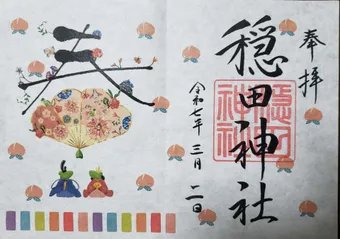 奉拝
穏田神社
穏田
神社
令和七年三月二日
春